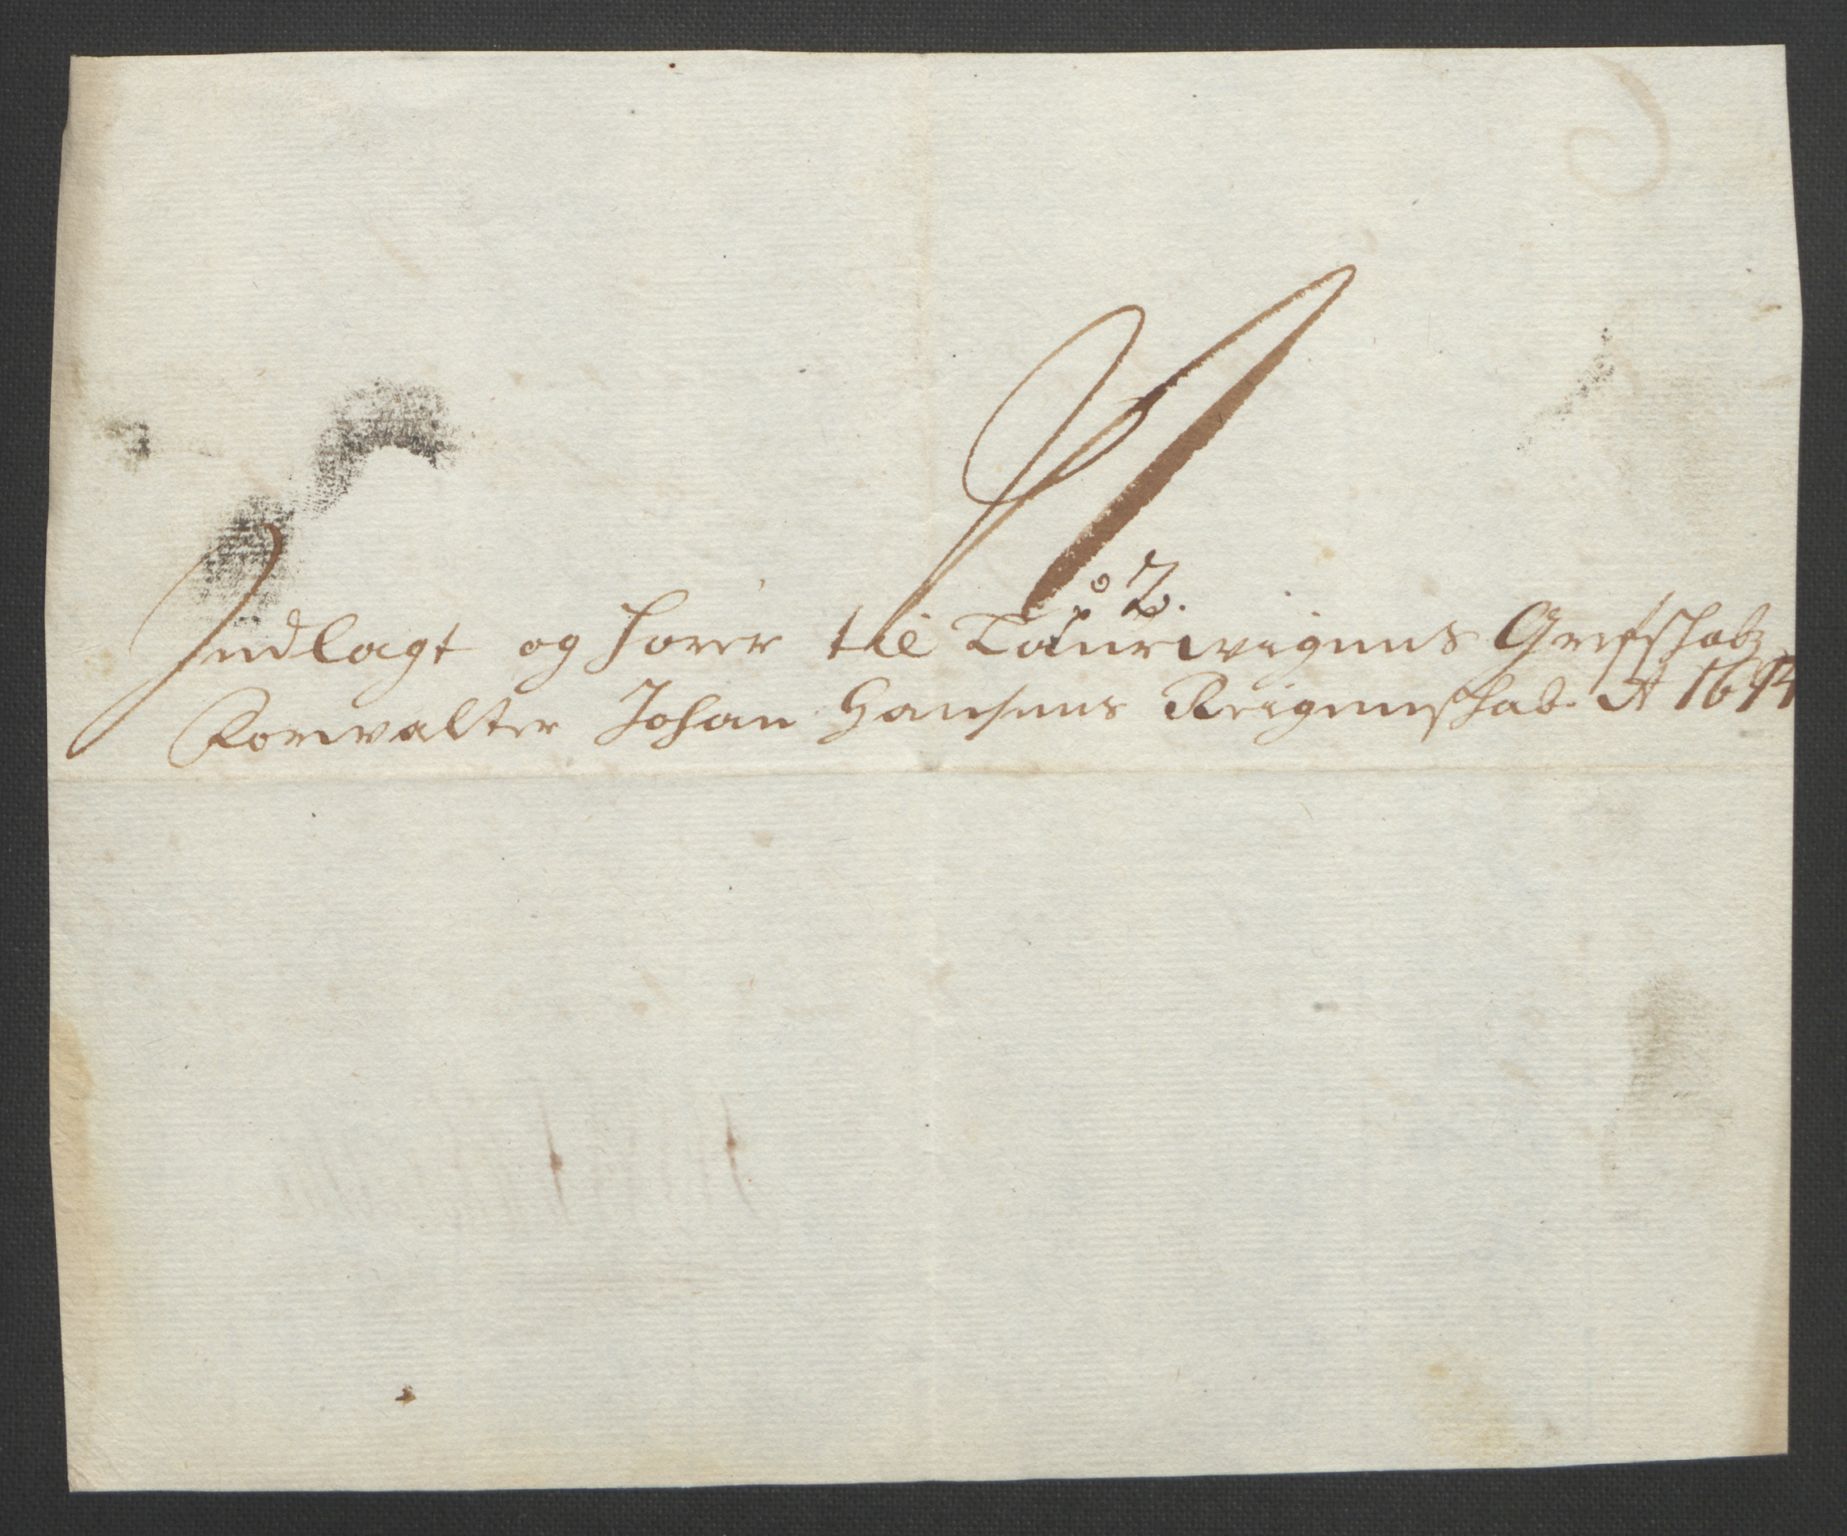 No 2.
Indlagt og hører til Laurwigens Grefschabz
Forwalter Johan Hansens Reigenschab. Ao 1694